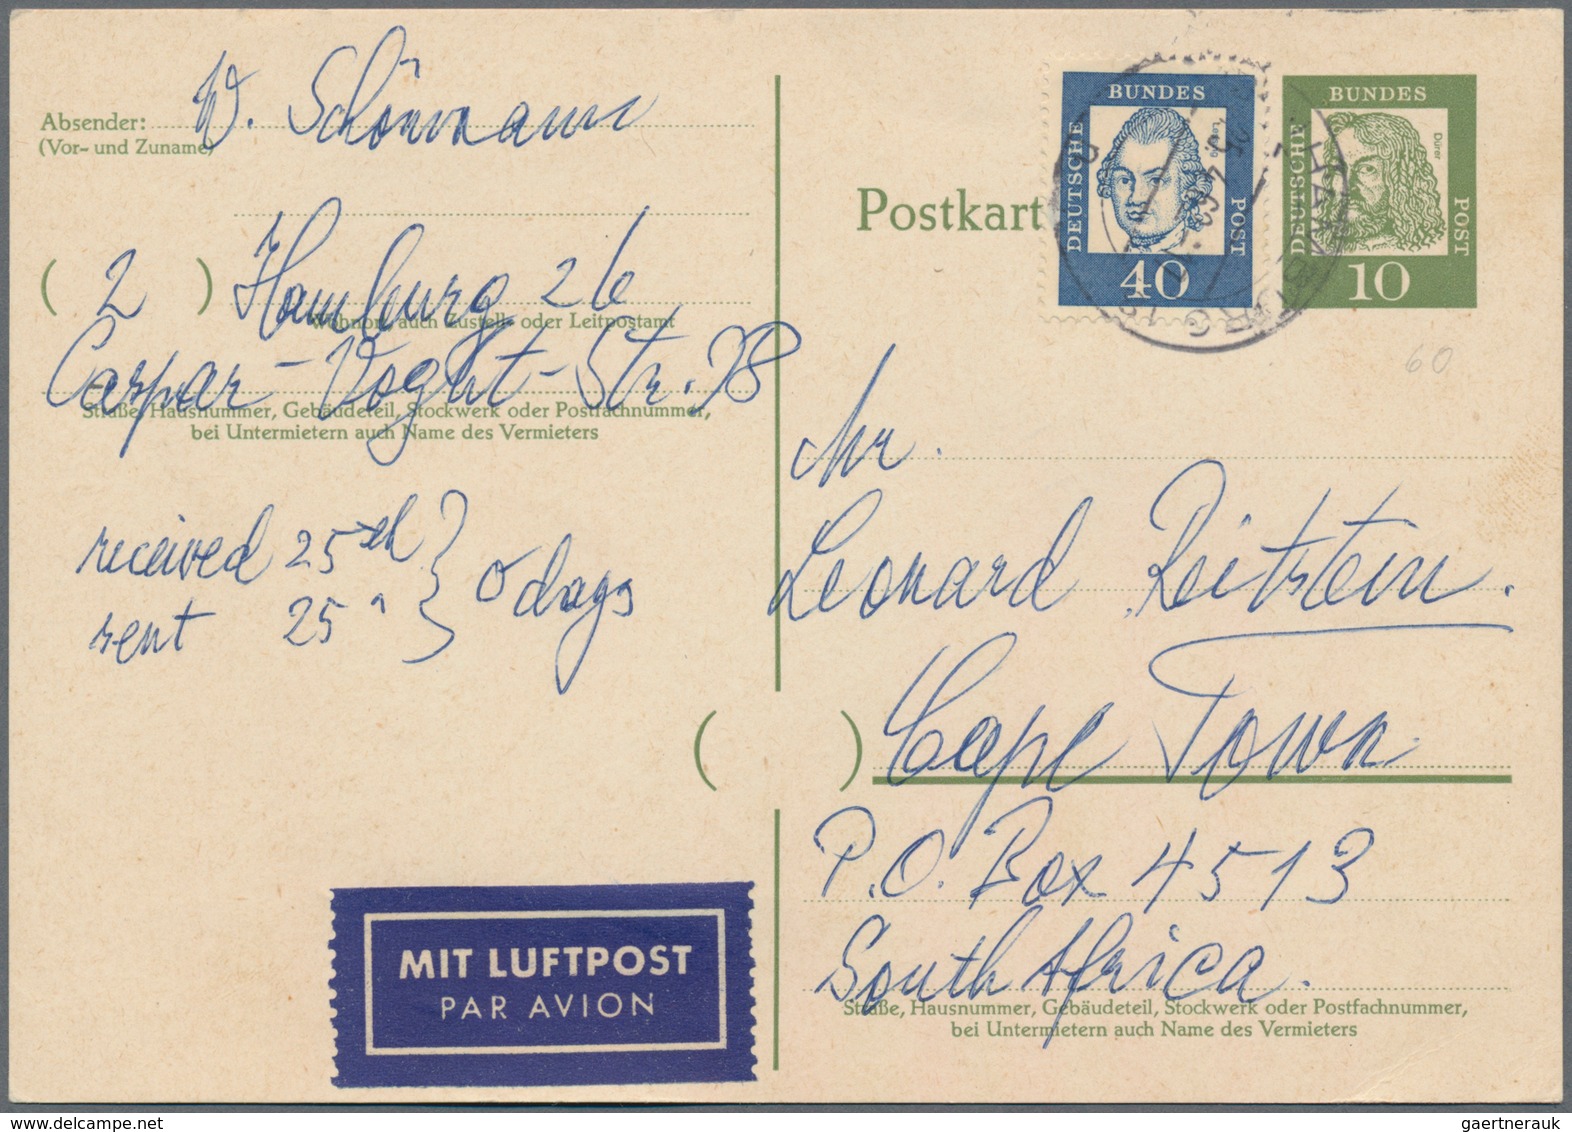 Absender: W. Schönmann
(Vor- und Zuname)
( 2 ) Hamburg 26
Wohnort, auch Zustell- oder Leitpostamt
Caspar-Voght-Str. 98
Straße, Hausnummer, Gebäudeteil, Stockwerk oder Postfachnummer,
bei Untermietern auch Name des Vermieters
received 25 } 0 days
sent 25 "
MIT LUFTPOST
PAR AVION
Postkart
DEUTSCHE BUNDES POST
40
DEUTSCHE BUNDES POST
Dürer
10
60
Mr.
Leonard Reitstein.
( ) Cape Town.
P.O. Box 4513
South Africa.
Straße, Hausnummer, Gebäudeteil, Stockwerk oder Postfachnummer,
bei Untermietern auch Name des Vermieters
gaertnerauk